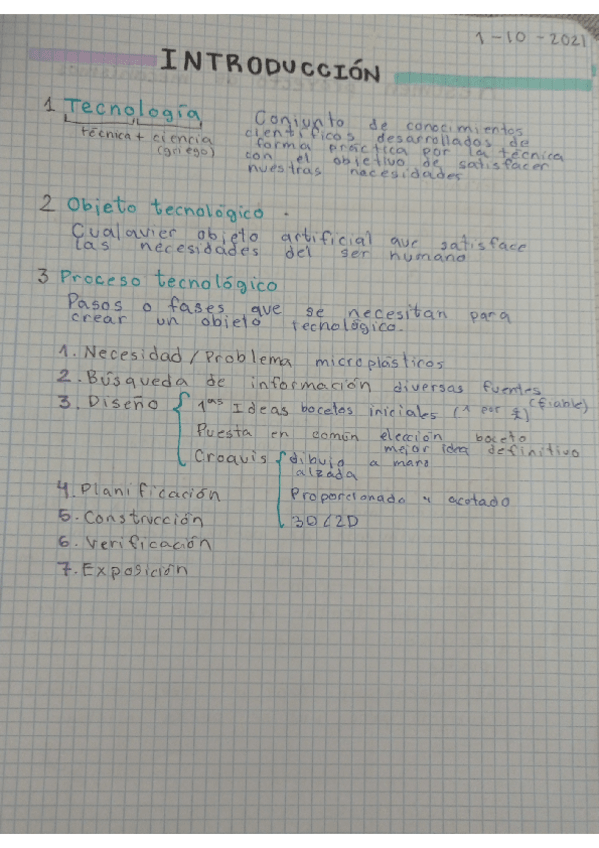 1-10-2021
INTRODUCCIÓN
1 Tecnología
técnica + ciencia
(griego)
Conjunto de conocimientos
científicos desarrollados de
forma práctica por la técnica
con el objetivo de satisfacer
nuestras necesidades
2 Objeto tecnológico.
Cualquier objeto artificial que satisface
las necesidades del ser humano
3 Proceso tecnológico
Pasos o fases que se necesitan para
crear un objeto tecnológico.
1. Necesidad/Problema microplásticos
2. Búsqueda de información diversas fuentes
(fiable)
3. Diseño { 1as Ideas bocetos iniciales (1 por
Puesta en común elección boceto
mejor idea definitivo
Croquis { dibujo a mano
alzada
Proporcionado y acotado
3D/2D
4. Planificación
5. Construcción
6. Verificación
7. Exposición